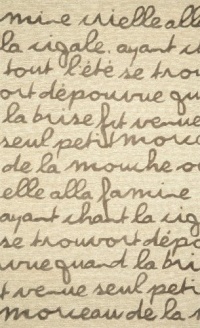 mine crielle alle
la cigale, ayant ch
tout l'été se trou
ort dépouvue qu
la brise fut venue
seul petit morce
de la mouche ou
elle alla famine
ayant chant la cig
se trouvort dépo
vue quand la bri
t venue seul peti
morceau de la m